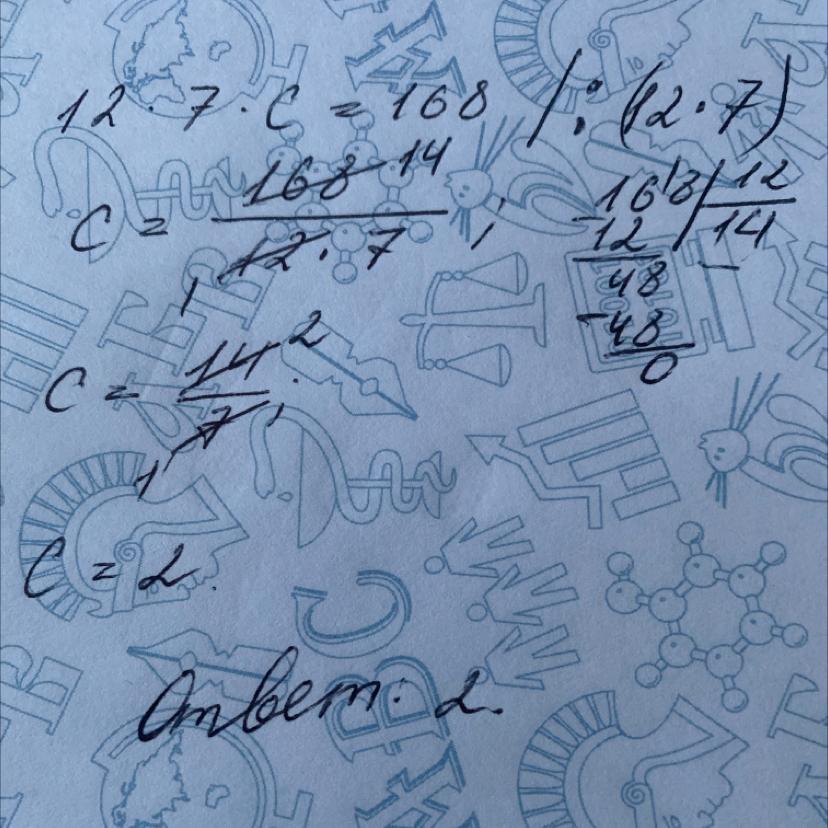 12 · 7 · c = 168 | : (12 · 7)
c = 168 14 / 1 12 · 7 ;
168 | 12
- 12 14
48
- 48
0
c = 14 2 / 1 7 ;
c = 2.
Ответ: 2.